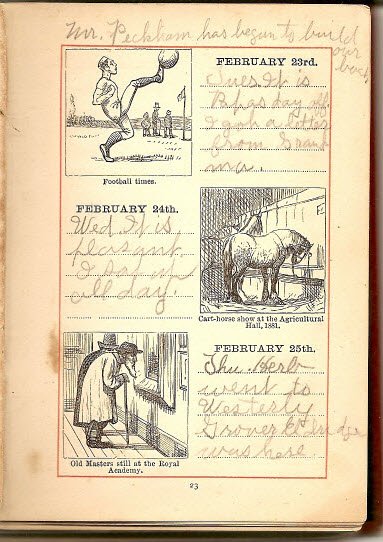 Mr. Peckham has begun to build
our
back
FEBRUARY 23rd.
Tues. It is
day
I got a letter
from Grand
ma.
Football times.
FEBRUARY 24th.
Wed It is
pleasant
I sat up
all day.
Cart-horse show at the Agricultural
Hall, 1881.
FEBRUARY 25th.
Thu. Herb
went to
Westerly
Grover
was here.
Old Masters still at the Royal
Academy.
23